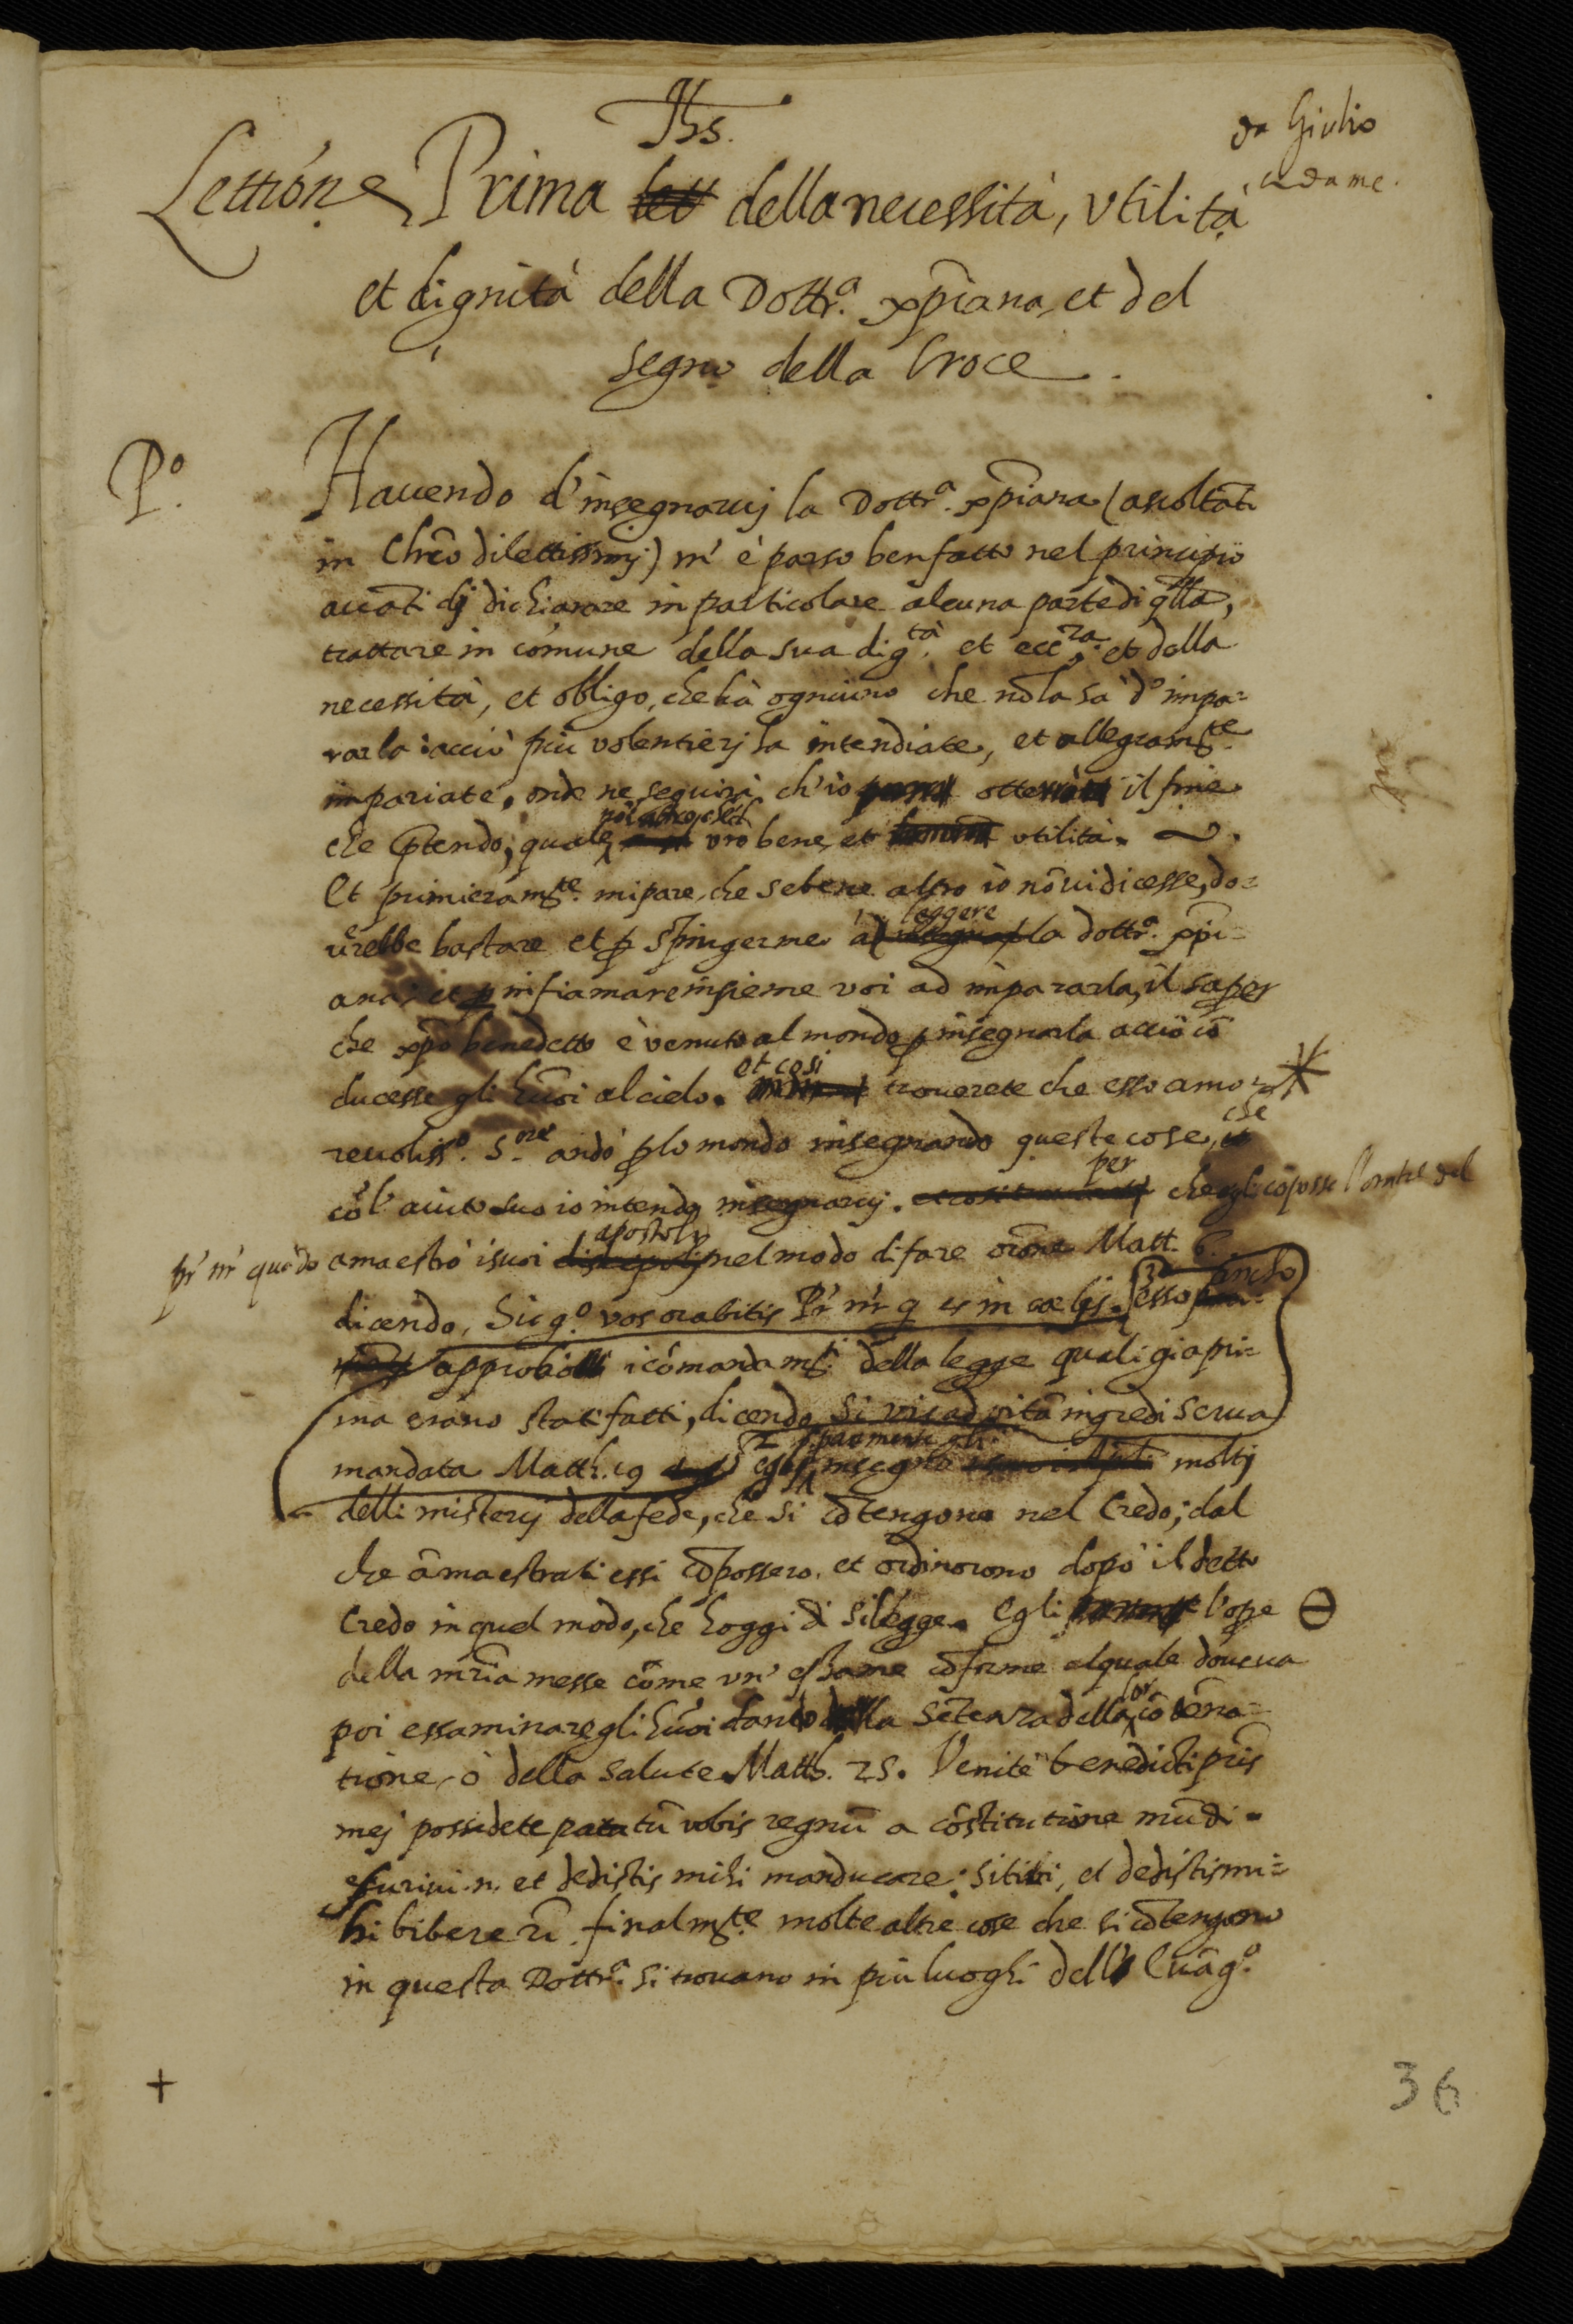 Jhs.
da Giulio
a da me.
Lettione Prima lett della necessità, vtilità
et dignità della Dottr.ª xp̃iana, et del
segno della Croce.
P.º
Hauendo d'insegnaruj la Dottr.ª xp̃iana (ascoltãti
in Chr̃o dilettissimj) m'è parso ben fatto nel principio
auãti dj dichiarare in particolare alcuna parte di q̃lla,
trattare in cõmune della sua dig.tà et ecc.za et della
necessità, et obligo, che hà ogniuno che nõ la sà d'impa=
rarla: acciò più volentierj la intendiate, et allegram̃te
impariate, onde ne seguirà ch'io otterrò il fine
che p̃tendo, quale nõ è altro che il vr̃o bene, et vtilità.
Et primieram̃te mi pare, che se bene altro io nõ vi dicesse, do=
urebbe bastare et p̱ spingerme à leggere la dottr.ª xp̃i=
ana, et p̱ infiamare insieme voi ad impararla, il saper
che xp̃o benedetto è venuto al mondo p̱ insegnarla acciò cõ
ducesse gli huõi al cielo. et cosi trouerete che esso amo= *
reuoliss.º S.ore andò p̱ lo mondo insegnando queste cose, che
cõ l'aiuto suo io intendo insegnaruj. per che egli cõposse l'oratne del
pr̃ nr̃ quãdo amaestrò i suoi discepolj apostolj nel modo di fare or̃one Matt. 6.
dicendo, Sic g.º vos orabitis Pr̃ nr̃ q̃ es in cælis. esso ancho
approbò i cõmandam̃ti della legge quali gia pri=
ma erano stati fatti, dicendo Si vis ad vitã ingredi serua
mandata Matth. 19 egli insegnò moltj
delli misterij della fede, che si cõtengono nel Credo; dal
che ãmaestrati essi cõpossero, et ordinorono dopò il detto
Credo in quel modo, che hoggi dì si legge. Egli l'op̱e Θ
della mr̃ia messe cõme vn' essame cõforme al quale doueua
poi essaminare gli huõi dando la sẽtenza della lor cõdẽna=
tione, ò della salute Matth. 25. Venite benedicti pr̃is
mej possidete paratũ vobis regnũ a cõstitutione mũdi.
esuriui .n. et dedistis mihi manducare: sitiui, et dedistis mi=
hi bibere finalm̃te molte altre cose che si cõtengono
in questa Dottr.ª si trouano in più luoghi dell' Euãg.º
+
36